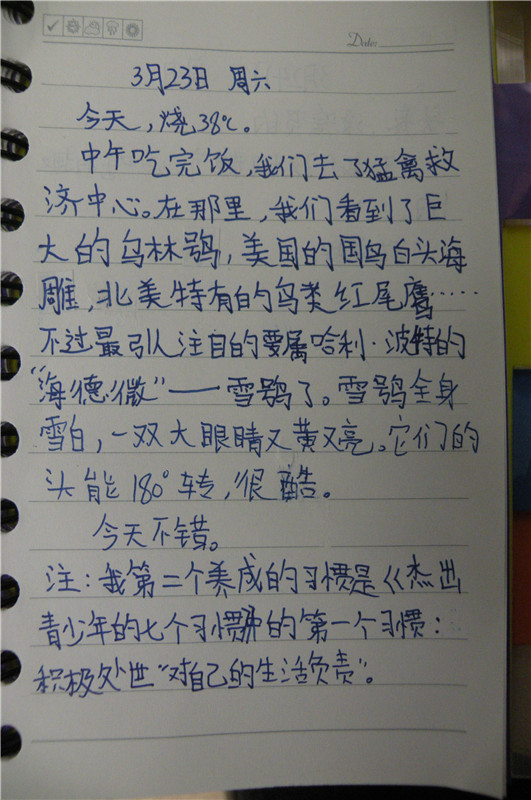 Date:
3月23日 周六
今天,烧38℃。
中午吃完饭,我们去了猛禽救
济中心。在那里,我们看到了巨
大的乌林鸮,美国的国鸟白头海
雕,北美特有的鸟类红尾鹰……
不过最引人注目的要属哈利·波特的
“海德微”——雪鸮了。雪鸮全身
雪白,一双大眼睛又黄又亮。它们的
头能180°转,很酷。
今天不错。
注:我第二个养成的习惯是《杰出
青少年的七个习惯》中的第一个习惯:
积极处世“对自己的生活负责”。